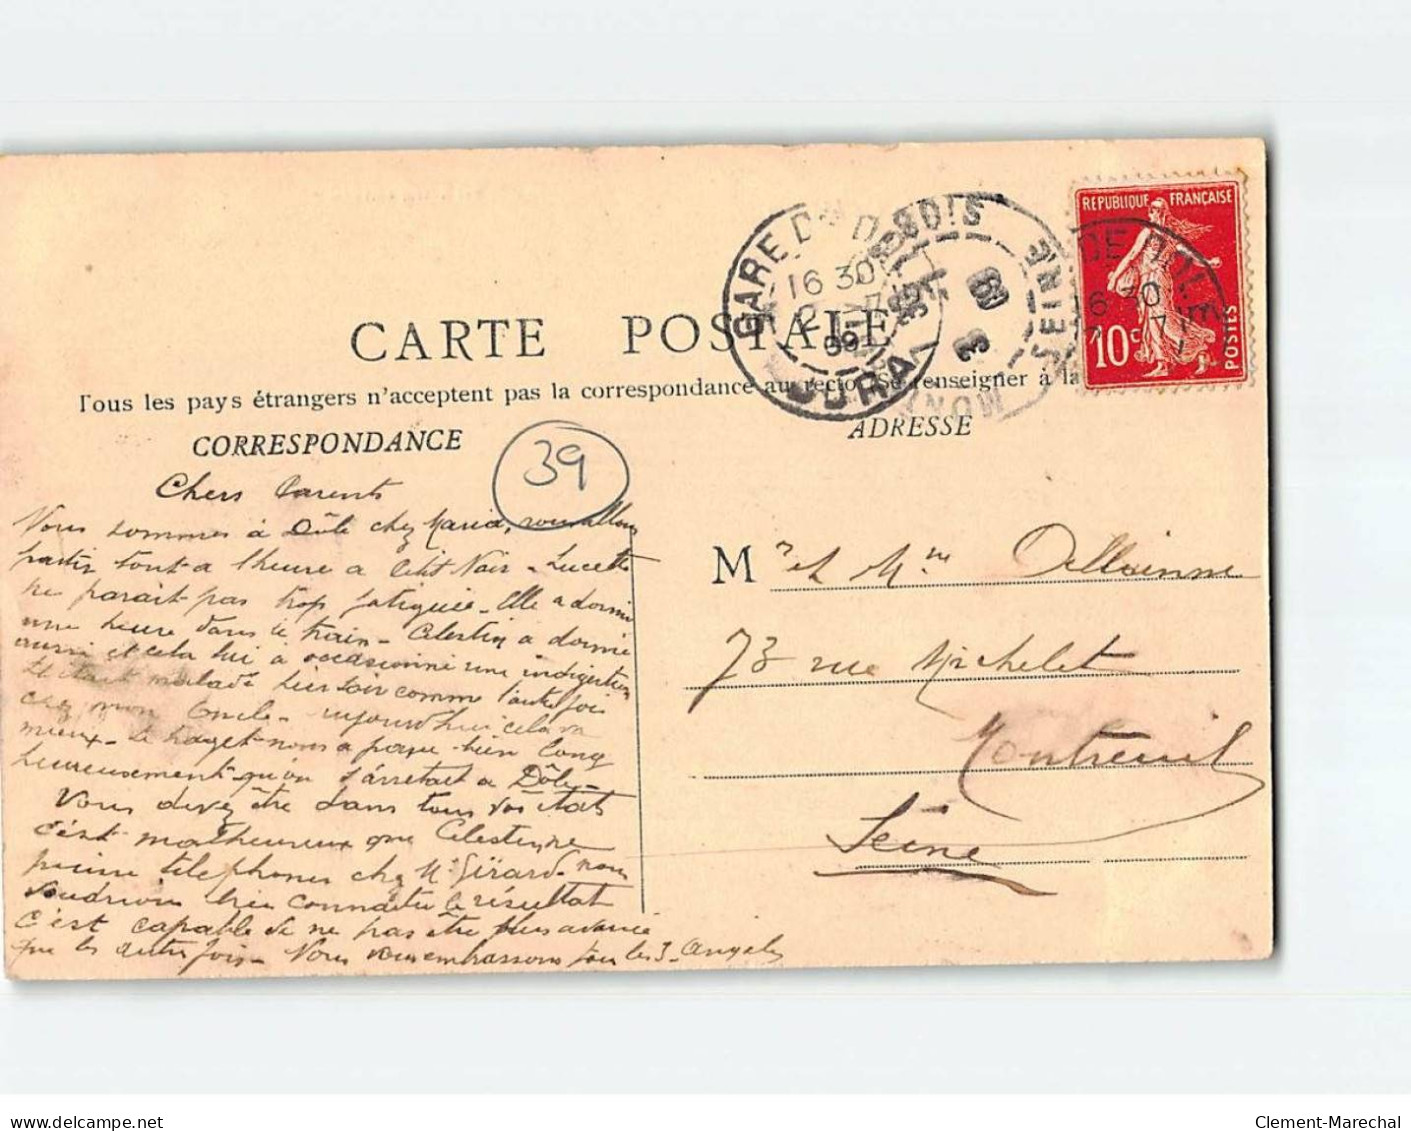 RÉPUBLIQUE FRANÇAISE
10 c
POSTES
GARE DE DOLE
16 30
2 -7
09
JURA
DE DOLE
16 30
BOIS
SEINE
3
09
CARTE POSTALE
Tous les pays étrangers n'acceptent pas la correspondance au recto. Se renseigner à la
CORRESPONDANCE
ADRESSE
39
Chers Parents
Nous sommes à Dôle chez Maria, nous allons
partir tout a l'heure a Petit Noir - Lucette
ne parait pas trop fatiguée - Elle a dormi
une heure dans le train - Célestin a dormi
aussi et cela lui a occasionné une indigestion
Il était malade hier soir comme l'autre fois
chez mon Oncle - aujourd'hui cela va
mieux - Le trajet nous a paru bien long
heureusement qu'on s'arretait a Dôle -
Vous devez être dans tous vos états
c'est malheureux que Célestin ne
puisse téléphoner chez Mr Girard - nous
voudrions bien connaitre le résultat
c'est capable de ne pas être plus avancé
que les autres fois - Nous vous embrassons tous les 3 - Angèle
Mr et Mme
73 rue Michelet
Montreuil
Seine
Clement-Marechal